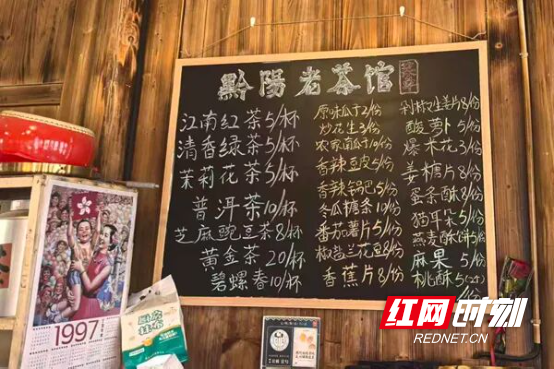 黔陽老茶馆
江南红茶5/杯
清香绿茶5/杯
茉莉花茶5/杯
普洱茶10/杯
芝麻豌豆茶8/杯
黄金茶20/杯
碧螺春10/杯
原味瓜子2/份
炒花生3/份
农家南瓜子10/份
香辣豆皮5/份
香辣锅巴5/份
冬瓜糖条10/份
番茄薯片5/份
椒盐兰花豆8/份
香蕉片8/份
剁椒生姜片8/份
酸萝卜5/份
爆米花3/份
姜糖片8/份
蛋条酥8/份
猫耳朵5/份
燕麦酥饼5/份
麻果5/份
桃酥5
1997
红网时刻
REDNET.CN